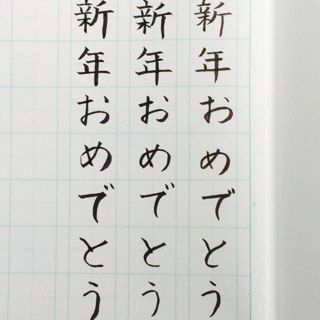 新年おめでとう
新年おめでとう
新年おめでとう